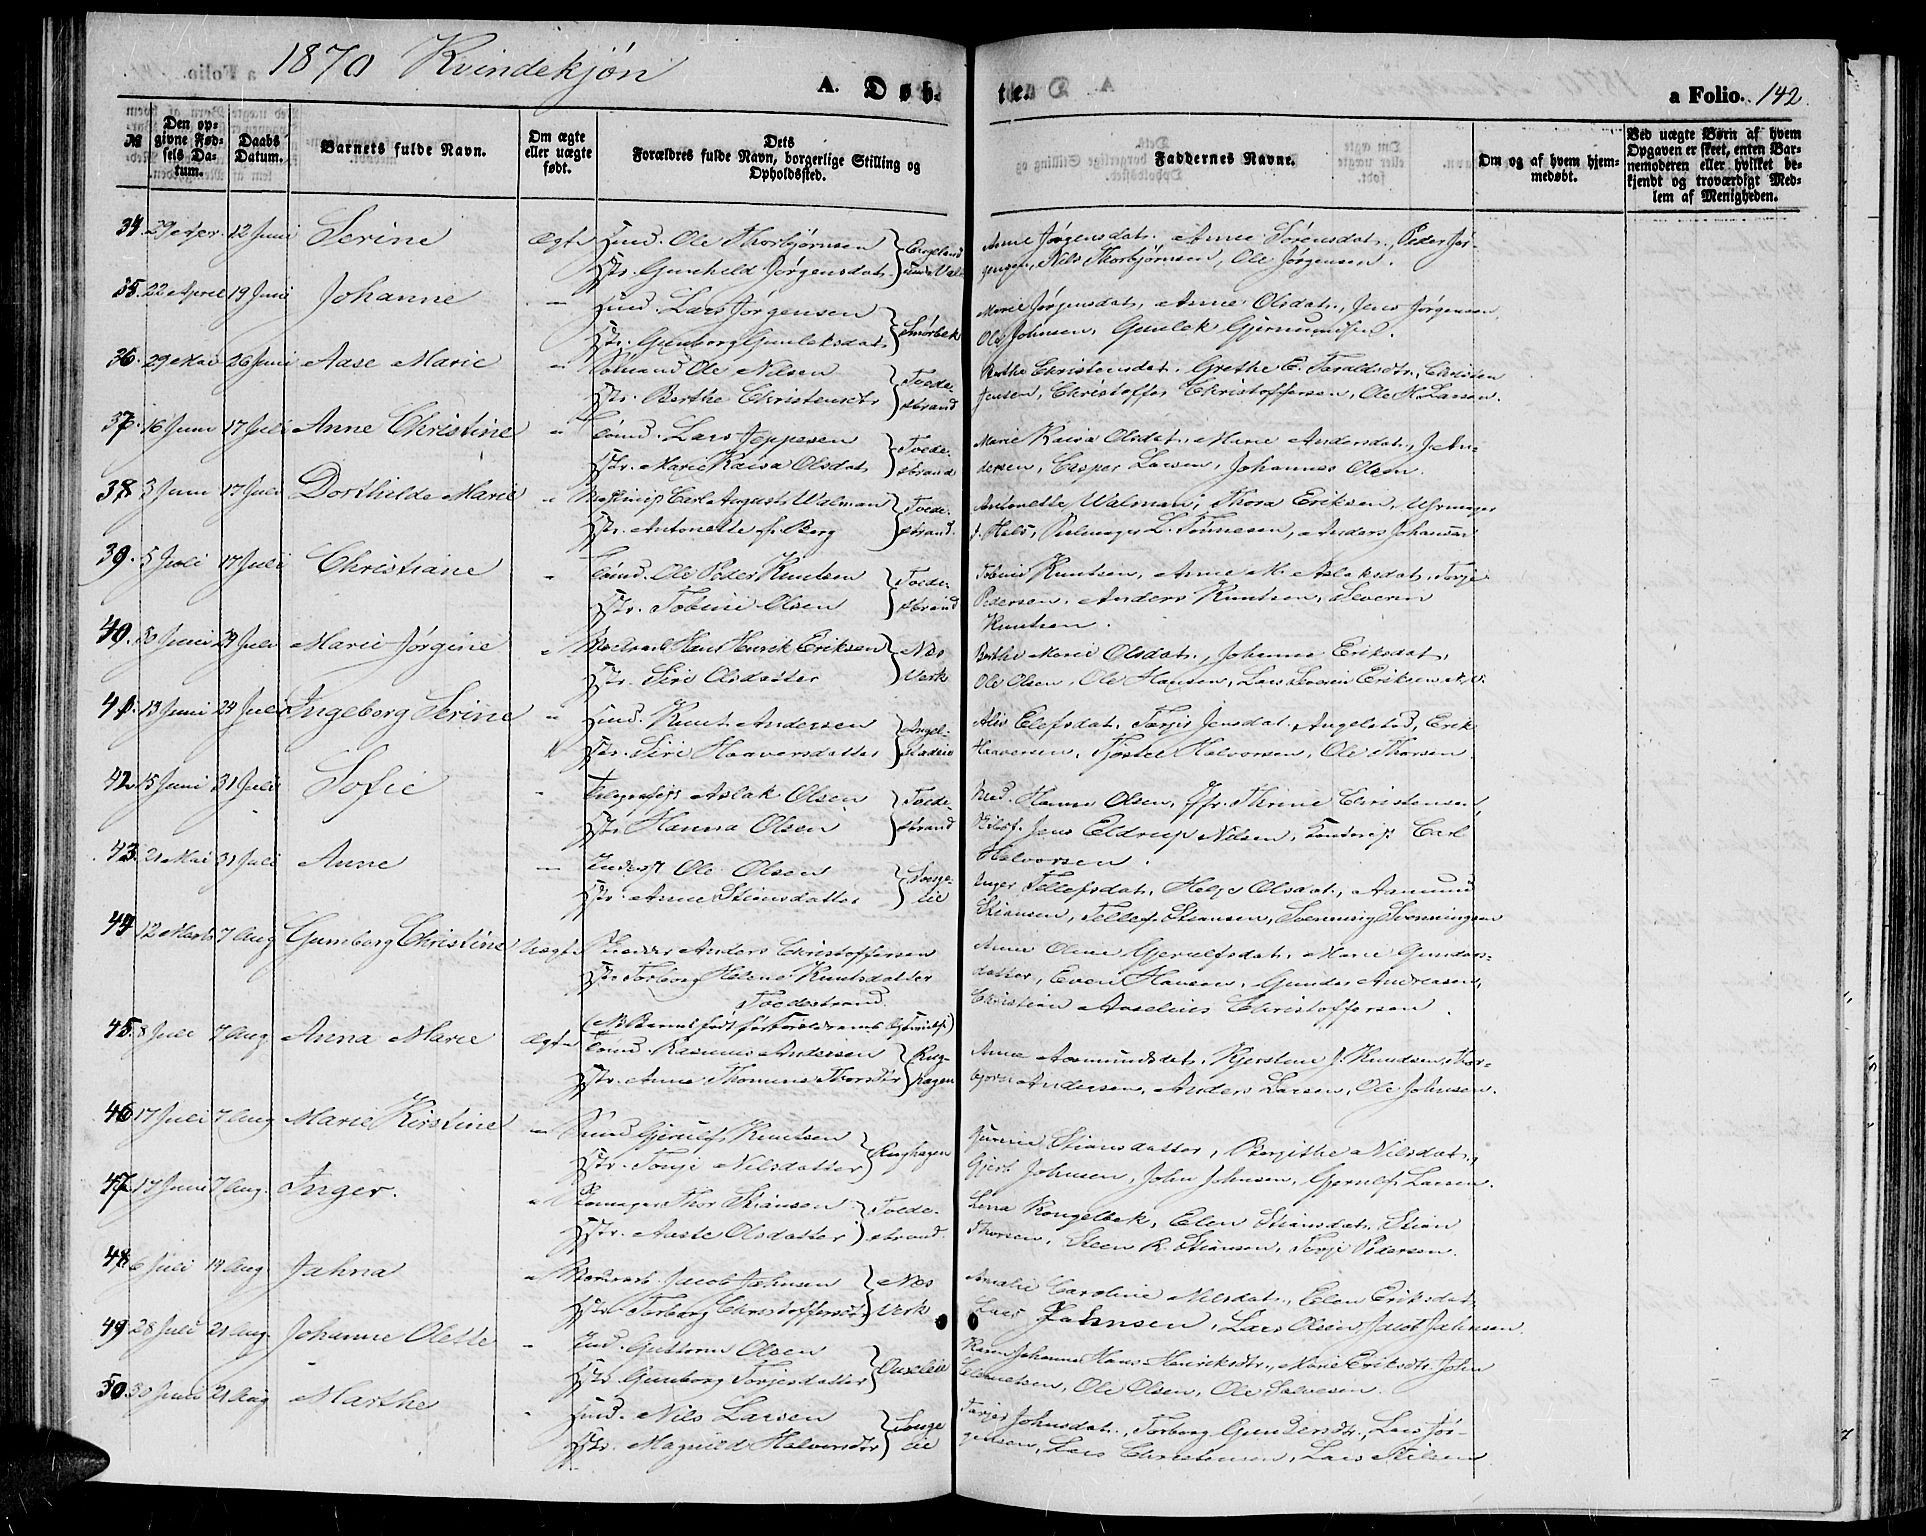 1870 Kvindekjøn
A. Døb-
te.
a Folio. 142.
№
Den op-
givne Fød-
sels Da-
tum.
Daabs
Datum.
Barnets fulde Navn.
Om ægte
eller uægte
født.
Dets
Forældres fulde Navn, borgerlige Stilling og
Opholdssted.
Faddernes Navne.
Om og af hvem hjem-
medøbt.
Ved uægte Børn af hvem
Opgaven er skeet, enten Bar-
nemoderen eller hvilket be-
kjendt og troværdigt Med-
lem af Menigheden.
34. 29 Apr. 12 Juni Serine Ægte Ole Thorbjørnsen
Gunhild Jørgensdat.
Anne Jørgensdat. Anne Sørensdat. Peder Jør-
gensen, Nils Thorbjørnsen, Ole Jørgensen.
35. 22 April 19 Juni Johanne " Lars Jørgensen
Gunborg Gunleksdat. Smørbek
Marie Jørgensdat, Anne Olsdat., Jens Jørgensen,
Ole Johnsen, Gunlek
36. 29 Mai 26 Juni Aase Marie " Sømand Ole Nilsen
Berthe Christensdtr Tvede-
strand
Berthe Christensdat. Grethe C. Taraldsdtr., Christen
Jensen, Christoffer Christoffersen, Ole M. Larsen.
37. 16 Juni 17 Juli Anne Christine " Sømd. Lars Jeppesen
Marie Raisa Olsdat. Tvede-
strand
Marie Raisa Olsdat. Marie Andersdat., J. An-
dersen, Casper Larsen, Johannes Olsen.
38. 3 Juni 17 Juli Dorthilde Marie " Carl August Walman
Antonette f. Berg Tvede-
strand.
Antonette Walman, Thora Eriksen, Uhrmager
L. Tønnesen, Anders Johansen
39. 5 Juli 17 Juli Christiane " Sømd. Ole Peder Knutsen
Tobine Olsen Tvede-
strand
Tobine Knutsen, Anne M. Aslaksdat. Terje
Pedersen. Anders Knutsen, Severin
Knutsen.
40. 30 Juni 24 Juli Marie Jørgine " Hans Henrik Eriksen Næs
Siri Olsdatter Værk
Berthe Marie Olsdat., Johanne Eriksdat,
Ole Olsen, Ole Hansen, Lars Severin Eriksen N.V.
41. 13 Juni 24 Juli Ingeborg Serine " Knut Andersen Angel-
Siri Haaversdatter staden
Alis Elefsdat, Terjer Jensdat. Angelstad, Erik
Haaversen, Tjøstel Halvorsen, Ole Thorsen
42. 15 Juni 31 Juli Sofie " Telegrafist Aslak Olsen Tvede-
Hanna Olsen strand
Mad. Hanna Olsen, Jfr. Thrine Christensen,
Jens Eldrup Nilsen, Kontorist Carl
Halvorsen.
43. 21 Mai 31 Juli Anne " Inderst Ole Olsen
Anne Stiansdatter Songe-
eie
Inger Tellefsdat, Helje Olsdat, Aamund
Stiansen, Tellef Stiansen, Svenning Svenningsen
44 12 Marts 7 Aug Gunborg Christine Uægte Anders Christoffersen
Torborg Helene Knutsdatter
Tvedestrand.
Anne Oline Gjerulfsdat, Marie Gunders-
datter, Even Hansen, Gunder Andreasen,
Christian Anselius Christoffersen.
45. 8 Juli 7 Aug Anna Marie Ægte Sømd. Rasmus Andersen
Anne Thomine Thorsdtr Ring-
hagen
Anne Aasmundsdat, Kjerstine J. Knudsen, Thor-
bjørn Andersen, Anders Larsen, Ole Johnsen.
46 17 Juli 7 Aug Marie Kirstine " Sømd Gjerulf Knutsen
Terje Nilsdatter Ringhagen
Stiansdatter, Bergithe Nilsdat,
Gjert Johnsen, John Johnsen, Gjerulf Larsen.
47 17 Juni 7 Aug. Inger. " Skomager Thor Stiansen Tvede-
Aaste Olsdatter strand.
Lena Rongelbek, Elen Stiansdat, Stian
Thorsen, Steen R. Stiansen, Terje Pedersen.
48. 6 Juli 14 Aug Jahna " Jacob Jahnsen Næs
Torborg Christoffersdtr Værk
Amalie Caroline Nilsdat., Elen Eriksdat,
Lars Jahnsen, Lars Olsen, Jacob Jahnsen.
49. 28 Juli 21 Aug. Johanne Olette " Guttorm Olsen
Gunborg Terjersdatter
Karen Johanne Hans Henriksdtr., Marie Eriksdtr. John
Ole Olsen, Ole Salvesen.
50. 30 Juli 21 Aug Marthe " Nils Larsen Songe
Magnild Halversdtr eie
Terjer Johnsdat., Torborg Gundersdtr., Lars Jør-
gensen, Lars Christensen, Lars Nilsen